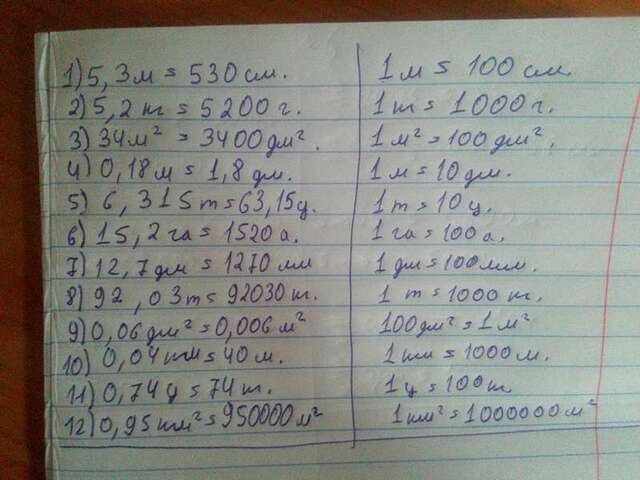 1) 5,3м = 530 см. 1 м = 100 см.
2) 5,2 кг = 5200 г. 1 кг = 1000 г.
3) 34 м² = 3400 дм². 1 м² = 100 дм².
4) 0,18 м = 1,8 дм. 1 м = 10 дм.
5) 6,315 т = 63,15 ц. 1 т = 10 ц.
6) 15,2 га = 1520 а. 1 га = 100 а.
7) 12,7 дм = 1270 мм 1 дм = 100 мм.
8) 92,03 т = 92030 кг. 1 т = 1000 кг.
9) 0,06 дм² = 0,006 м² 100 дм² = 1 м²
10) 0,04 км = 40 м. 1 км = 1000 м.
11) 0,74 ц = 74 кг. 1 ц = 100 кг
12) 0,95 км² = 950000 м² 1 км² = 1000000 м²